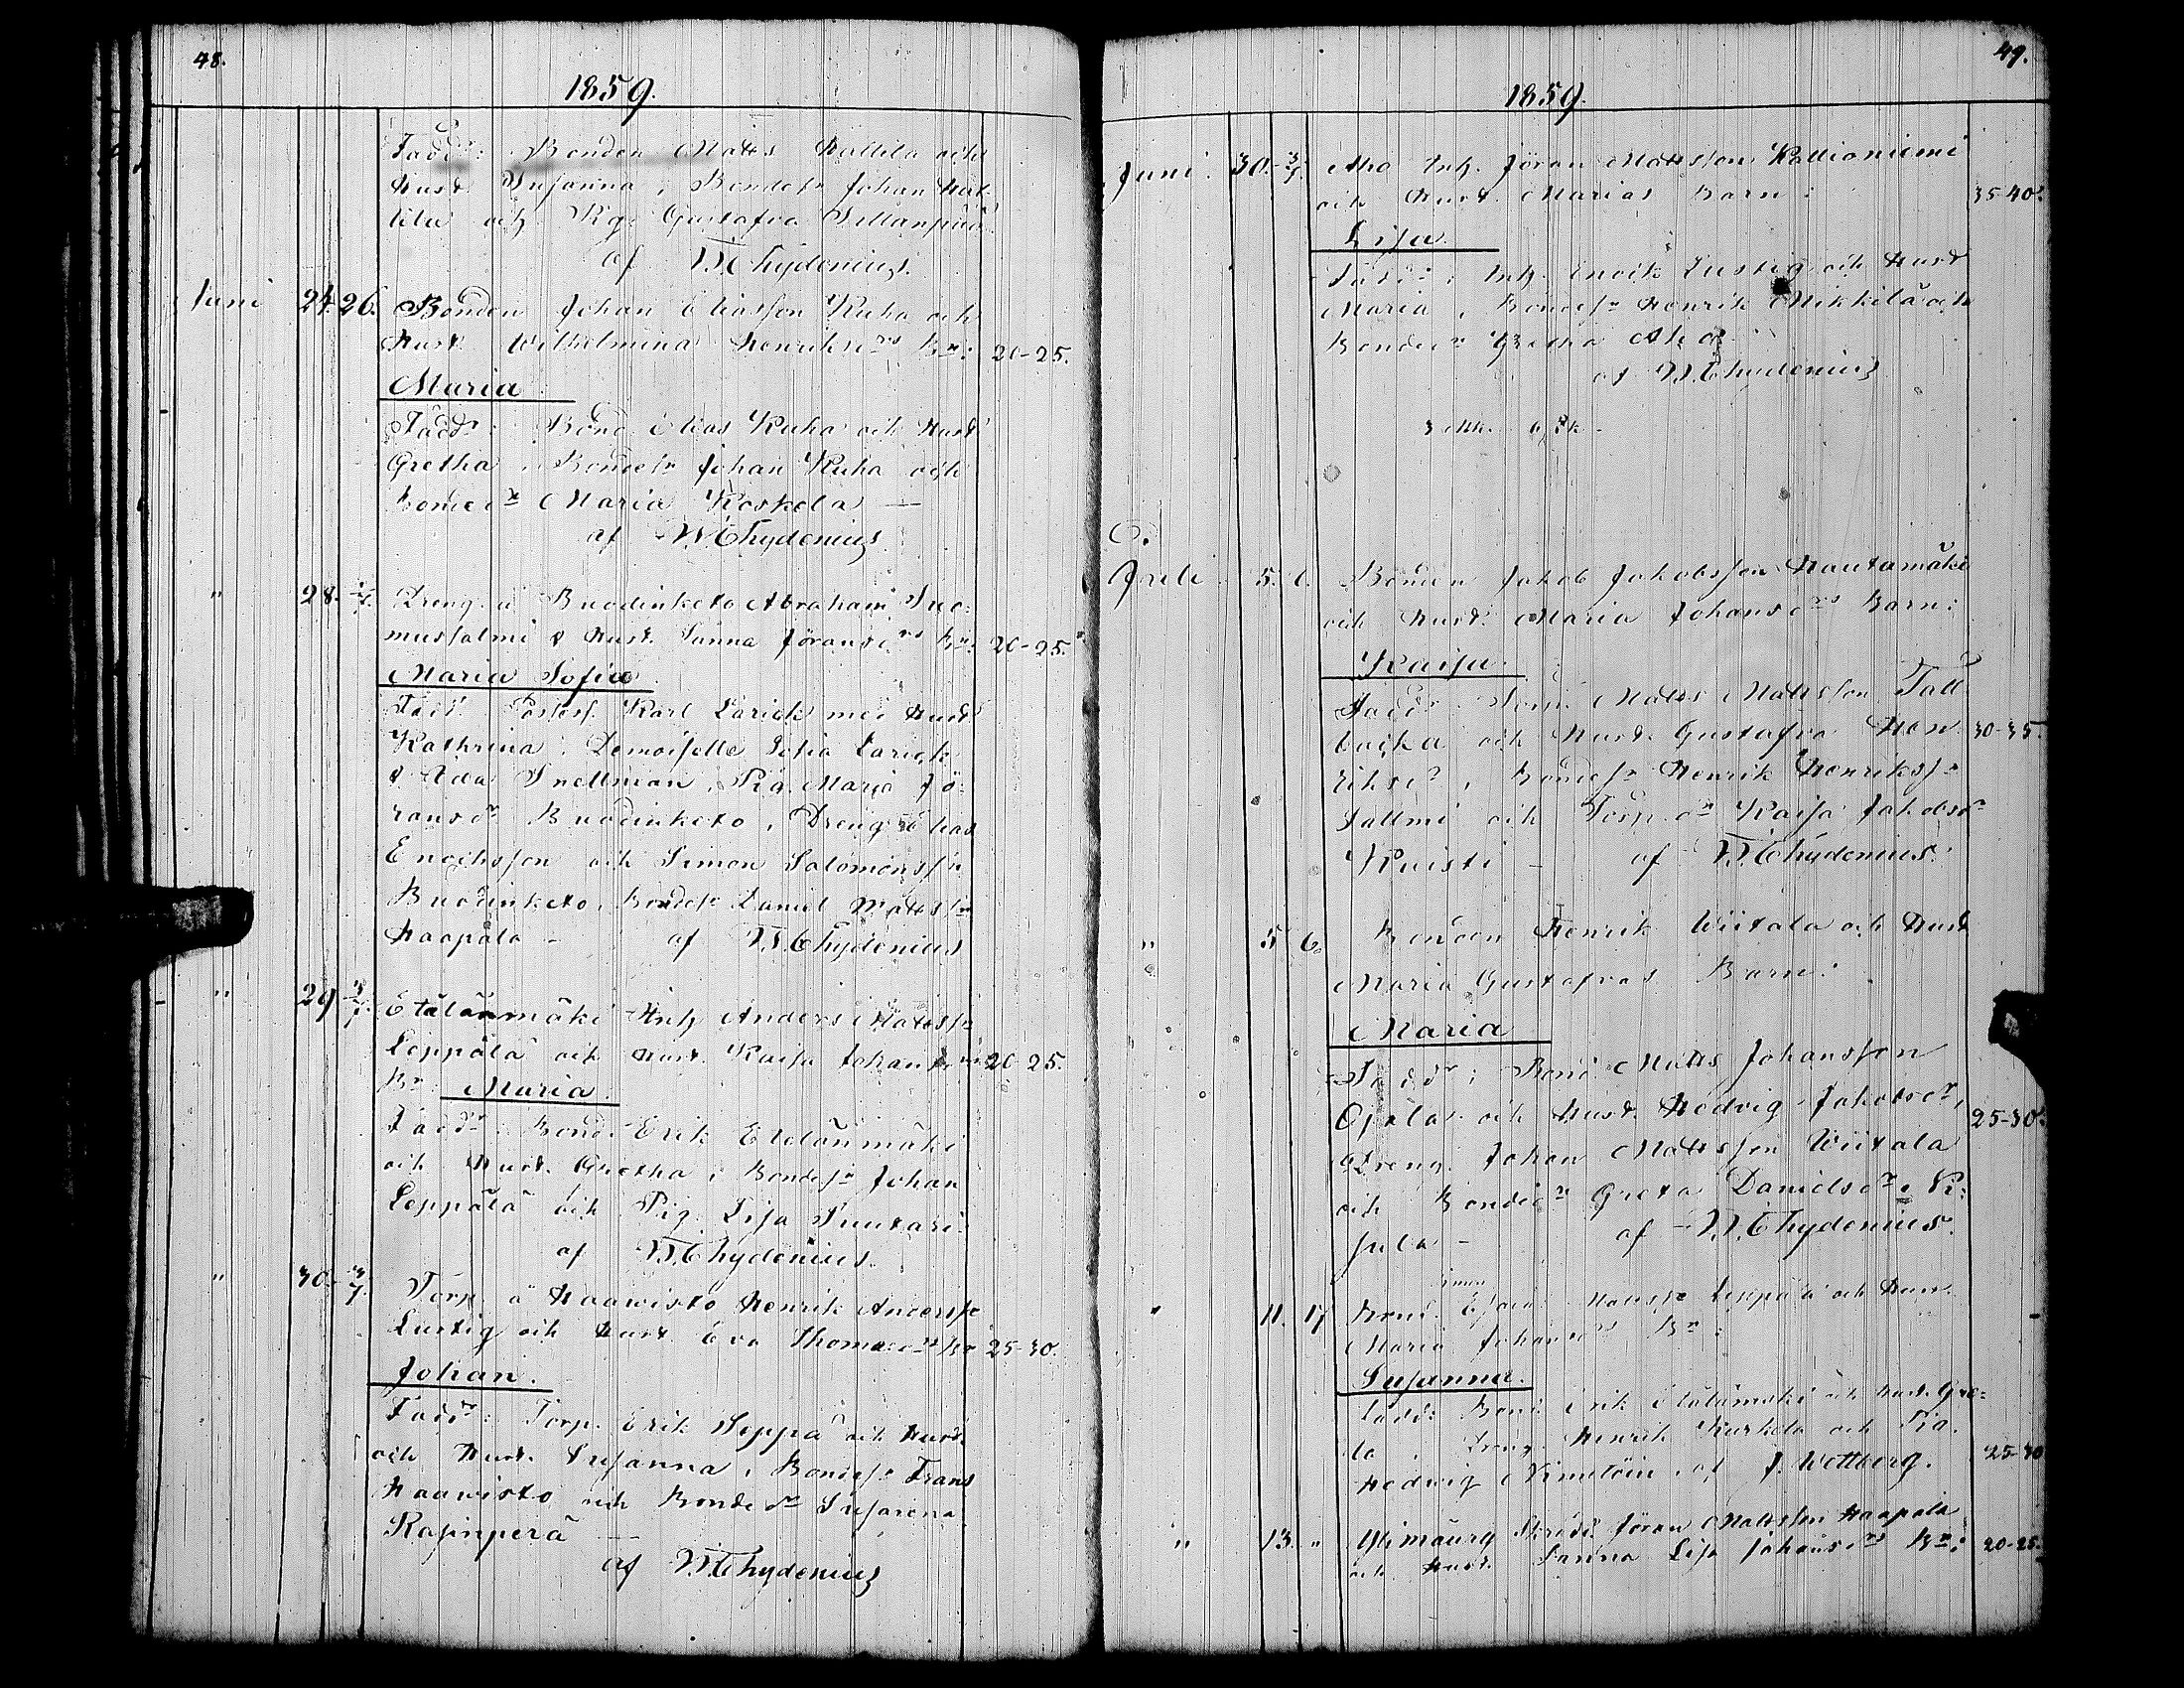 48.
1859.
Fadd: Bonden Matts Kallila och
Hust Susanna, Bondes. Johan Kal-
lila och Pig. Gustafva Sillanpää
af W. Chydenius.
Juni 24. 26. Bonden Johan Eliasson Kuha och
Hust. Wilhelmina Henriksd:rs Bn: 20-25.
Maria
Fadd: Bond. Elias Kuha och Hust
Gretha, Bondes:n Johan Kuha och
Bonded:r Maria Koskela —
af W. Chydenius
" 28. 1/7. Dreng. å Buodinketo Abraham Suo-
mussalmi & Hust. Sanna Jöransd:rs Bn: 20-25.
Maria Sofia
Fadd: Possess. Karl Larick med Hust
Kathrina, Demoiselle Sofia Larick
& Aida Snellman, Pig. Maria Jö-
ransd:r Buodinketo, Dreng Elias
Enochsson och Simon Salomonss:n
Buodinketo, Bondes:n Daniel Mattss:n
Haapala – af W. Chydenius
" 29 3/7. Etäläänmäki Inh. Anders Mattss:n
Leppälä och Hust. Kaisa Johansd:rs 20-25.
Bn: Maria.
Fadd:r Bond. Erik Eteläänmäki
och Hust. Gretha, Bondes:n Johan
Leppälä och Pig. Lisa Suutari
af W. Chydenius.
" 30. 3/7. Torp. å Haawisto Henrik Anderss:n
Lustig och Hust Eva Thomasd:rs Bn 25-30.
Johan.
Fadd:r: Torp. Erik Seppä och Hust.
och Hust. Susanna, Bondes:n Frans
Haawisto och Bonded:r Susanna
Rapinperä —
af W. Chydenius
49.
1859.
Juni. 30. 3/7. Aho Inh. Jöran Mattsson Kallioniemi
och Hust. Marias Barn: 35-40.
Lisa.
Fadd: Inh. Enoik Lustig och Hust
Maria, Bondes:n Henrik Mikkilä och
Bonded:r Gretha Aho.
af W. Chydenius
Juli 5. 6. Bonden Jakob Jakobsson Hautamäki
och Hust: Maria Johansd:rs Barn:
Kaisa.
Fadd:r Matts Mattsson Tall-
backa och Hust. Gustafva Hen- 30-35.
riksd:r, Bondes:n Henrik Henrikss:n
Sallmi och Torp. d:r Kaisa Jakobsd:r
Kuisti – af W. Chydenius.
" 5 6. Bonden Henrik Wiitala och Hust
Maria Gustafvas Barn:
Maria
Fadd:r: Bond. Matts Johansson
Ojala och Hust. Hedvig Jakobsd:r, 25-30.
Dreng. Johan Mattsson Wiitala
och Bonded:r Greta Danielsd:r
sula – af W. Chydenius.
" 11. 17 Bond. Mattss:n Leppälä och Hust.
Maria Johansd:rs Bn:
Susanna.
Fadd: Bond. Erik Etälämäki och Hust. Gre-
ta, Dreng. Henrik Kurkela och Pig.
Hedwig af J. Wettberg. 25-30
" 13. " Skrädd. Jöran Mattsson Haapala
och Hust. Sanna Lisa Johansd:rs Bn: 20-25.